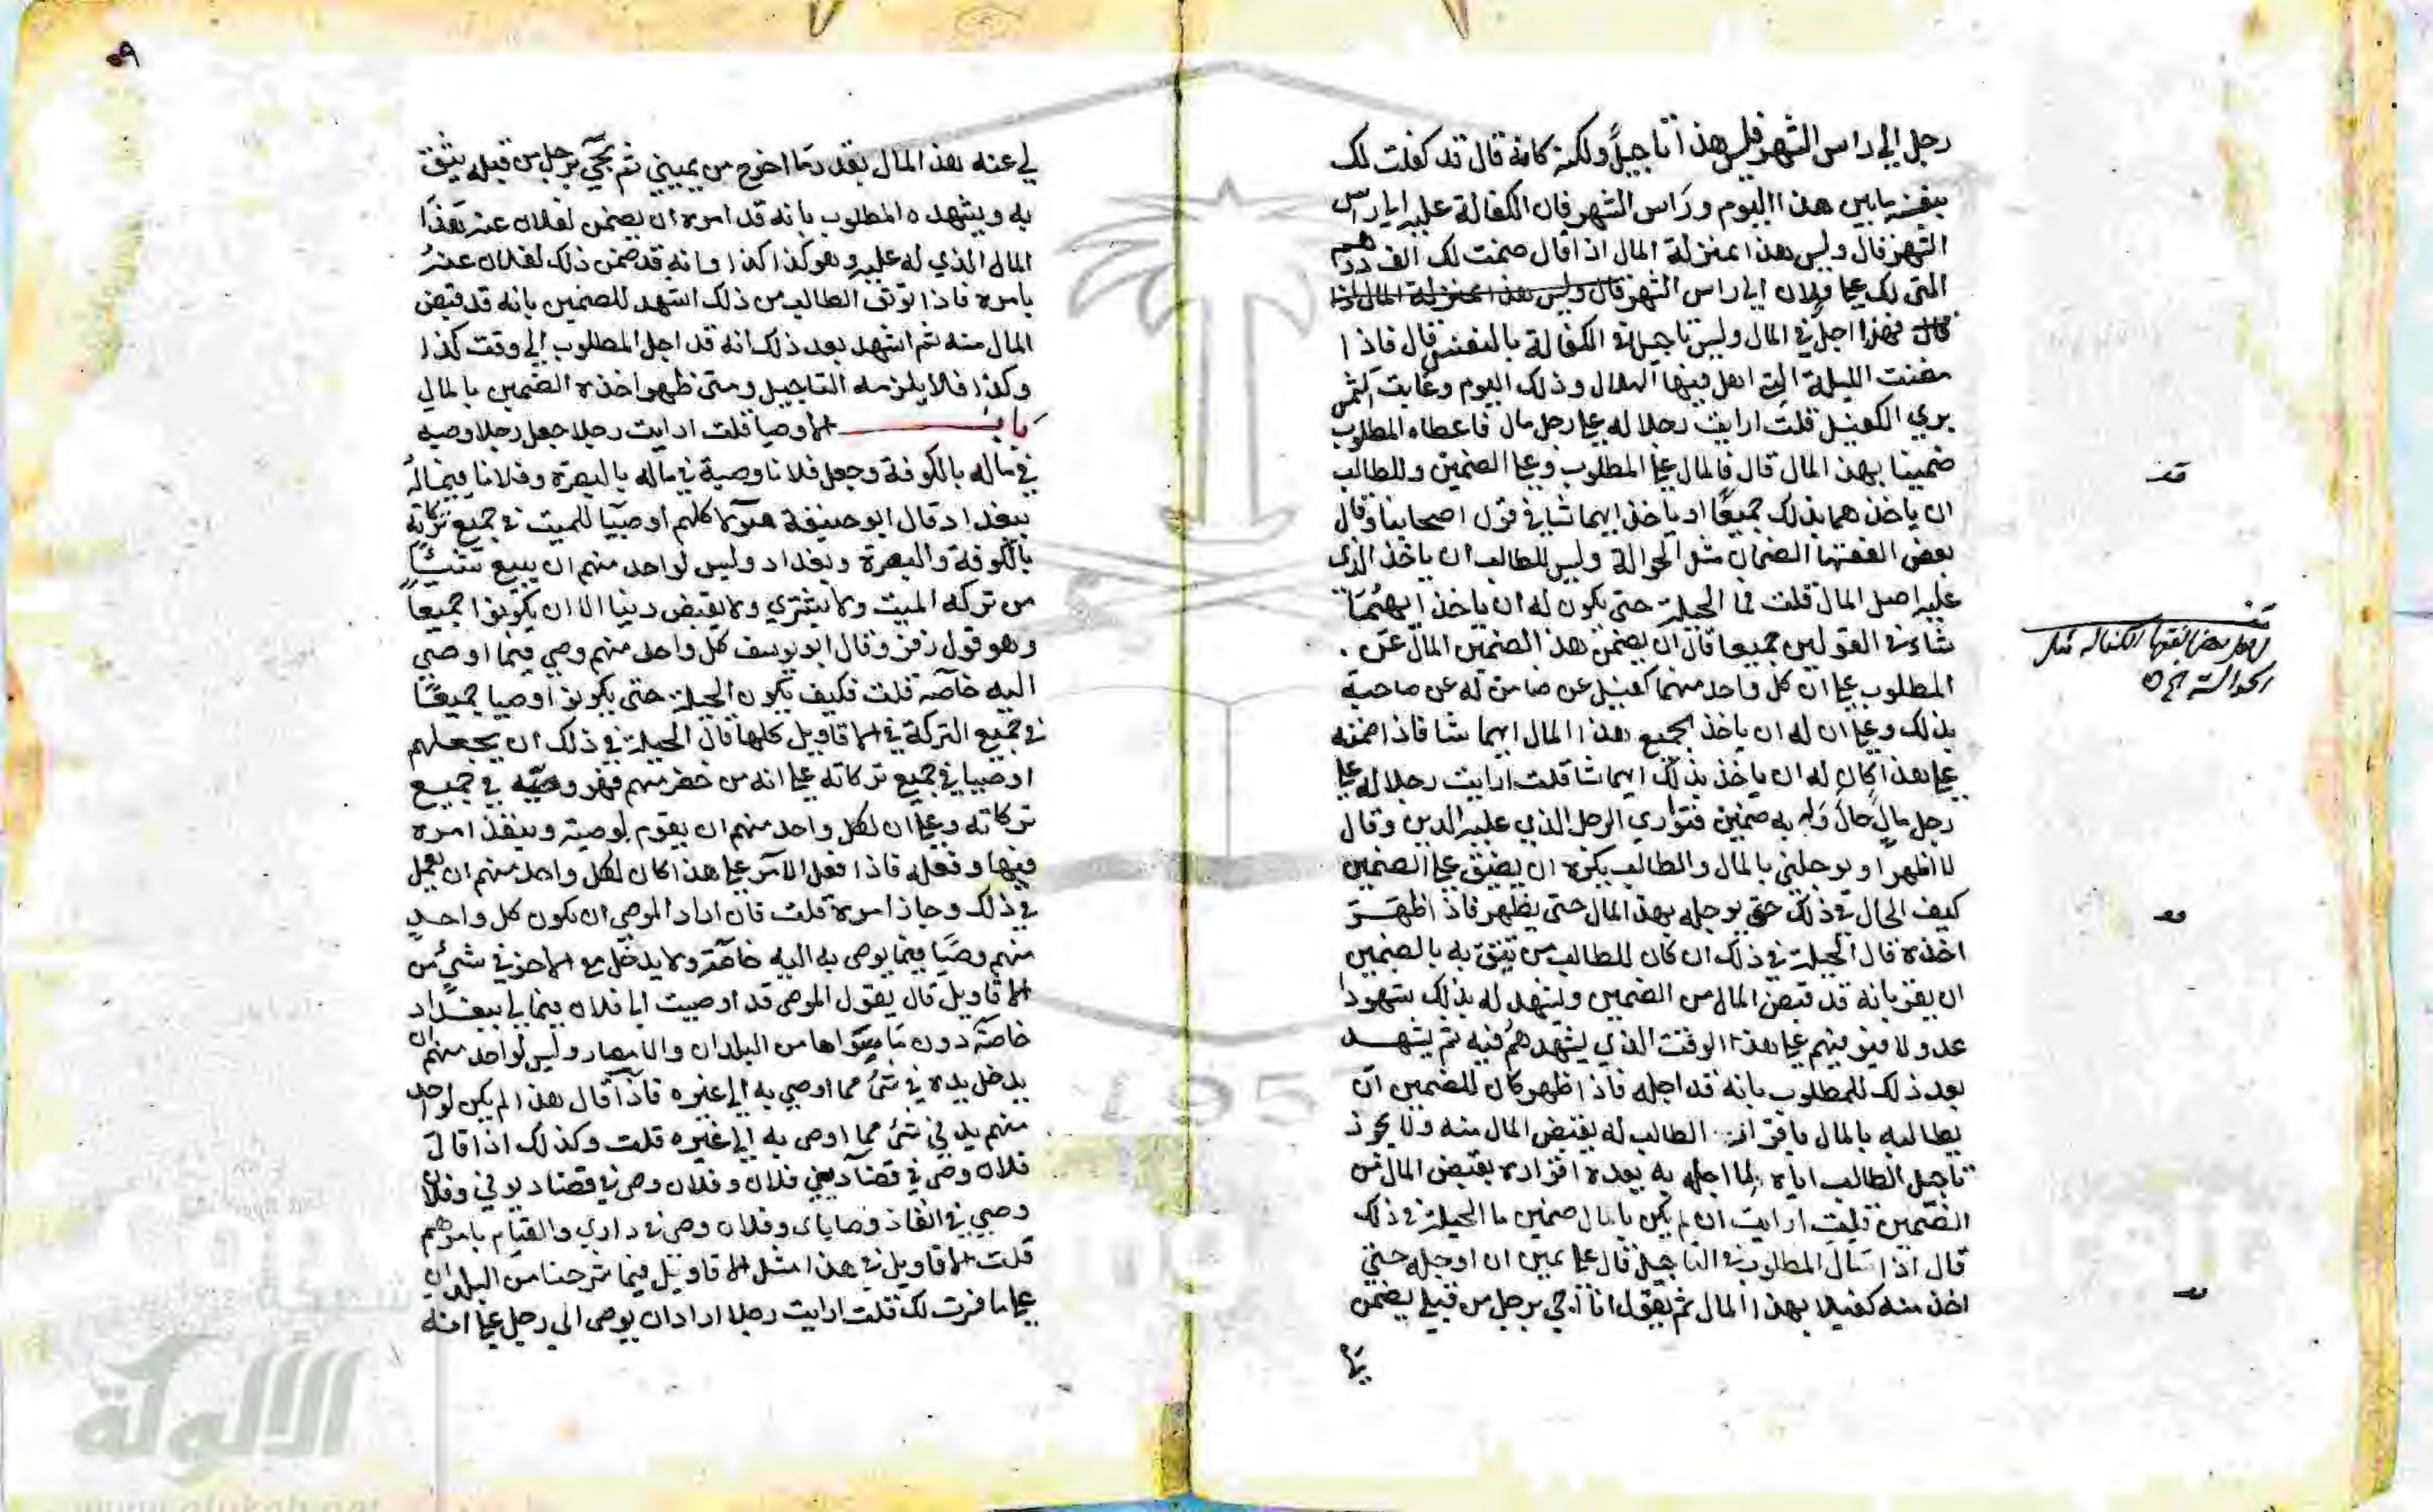 رجل الي راس الشهر فليس هذا تاجيلا ولكنه كانه قال قد كفلت لك
بنفسه ما بين هذا اليوم وراس الشهر فان الكفالة عليه الي راس
الشهر قال وليس هذا بمنزلة المال اذا قال ضمنت لك الف درهم
التي لك علي فلان الي راس الشهر قال وليس هذا بمنزلة المال اذا
قال فهذا اجل في المال وليس تاجيلا في الكفالة بالنفس قال فاذا
مضت الليلة التي اهل فيها الهلال وذلك اليوم وغابت الشمس
بري الكفيل قلت ارايت رجلا له علي رجل مال فاعطاه المطلوب
ضمينا بهذا المال قال فالمال علي المطلوب وعلي الضمين وللطالب
ان ياخذهما بذلك جميعا او ياخذ ايهما شا في قول اصحابنا وقال
بعض الفقها الضمان مثل الحوالة وليس للطالب ان ياخذ الذي
عليه اصل المال قلت فما الحيلة حتي يكون له ان ياخذ ايهما
شاء في القولين جميعا قال ان يضمن هذا الضمين المال عن
المطلوب علي ان كل واحد منهما كفيل عن ضامن له عن صاحبه
بذلك وعلي ان له ان ياخذ بجميع هذا المال ايهما شا فاذا ضمنه
علي هذا كان له ان ياخذ بذلك ايهما شا قلت ارايت رجلا له علي
رجل مال حال وله به ضمين فتواري الرجل الذي عليه الدين وقال
لا اظهر او توجلني بالمال والطالب يكره ان يضيق علي الضمين
كيف الحال في ذلك حتي يوجله بهذا المال حتي يظهر فاذا ظهر
اخذه قال الحيلة في ذلك ان كان للطالب من يثق به بالضمين
ان يقر بانه قد قبض المال من الضمين وليشهد له بذلك شهودا
عدولا فيوقيهم علي هذا الوقت الذي يشهدهم فيه ثم يشهد
بعد ذلك للمطلوب بانه قد اجله فاذا ظهر كان للضمين ان
يطالبه بالمال باقرار الطالب له بقبض المال منه ولا يجوز
تاجيل الطالب اياه بما اجله به بعد اقراره بقبض المال من
الضمين قلت ارايت ان لم يكن بالمال ضمين ما الحيلة في ذلك
قال اذا سال المطلوب في التاجيل قال علي يمين ان اوجله حتي
اخذ منه كفيلا بهذا المال ثم يقول انا اجي برجل من قبلي يضمن
قف
قف
بعض الفقها الكفالة مثل
الحوالة
قف
قف
٥٩
لي عنه هذا المال بقدر ما اخرج من يميني ثم يجي برجل من قبله يثق
به ويشهد المطلوب بانه قد امره ان يضمن لفلان عنه هذا
المال الذي له عليه وهو كذا كذا وانه قد ضمن ذلك لفلان عنه
بامره فاذا توثق الطالب من ذلك اشهد للضمين بانه قد قبض
المال منه ثم اشهد بعد ذلك انه قد اجل المطلوب الي وقت كذا
وكذا فلا يلزمه التاجيل ومتي ظهر اخذه الضمين بالمال
باب الاوصيا قلت ارايت رجلا جعل رجلا وصيه
في ماله بالكوفة وجعل فلانا وصية في ماله بالبصرة وفلانا فيما له
ببغداد قال ابو حنيفة هولا كلهم اوصيا للميت في جميع تركاته
بالكوفة والبصرة وبغداد وليس لواحد منهم ان يبيع شيئا
من تركه الميت ولا يشتري ولا يقبض دينا الا ان يكونوا جميعا
وهو قول زفر وقال ابو يوسف كل واحد منهم وصي فيما اوصي
اليه خاصة قلت فكيف يكون الحيلة حتي يكونوا اوصيا جميعا
في جميع التركة في الاقاويل كلها قال الحيلة في ذلك ان يجعلهم
اوصيا في جميع تركاته علي انه من حضر منهم فهو وصيه في جميع
تركاته وعلي ان لكل واحد منهم ان يقوم بوصيته وينفذ امره
فيها وفعله فاذا فعل الامر علي هذا كان لكل واحد منهم ان يعمل
في ذلك وجاز امره قلت فان اراد الموصي ان يكون كل واحد
منهم وصيا فيما يوصي به اليه خاصة ولا يدخل مع الاخر في شيء من
الاقاويل قال يقول الموصي قد اوصيت الي فلان فيما لي ببغداد
خاصة دون ما سواها من البلدان والامصار وليس لواحد منهم ان
يدخل يده في شي مما اوصي به الي غيره فاذا قال هذا لم يكن لواحد
منهم يد في شي مما اوصي به الي غيره قلت وكذلك اذا قال
فلان وصي في قضا ديني فلان وفلان وصي في قضا ديوني وفلان
وصيي في انفاذ وصاياي وفلان وصي في داري والقيام بامرهم
قلت الاقاويل في هذا مثل الاقاويل فيما شرحنا من البلدان
علي ما فسرت لك قلت ارايت رجلا اراد ان يوصي الي رجل علي انه
شبكة
الألوكة
www.alukah.net
1957